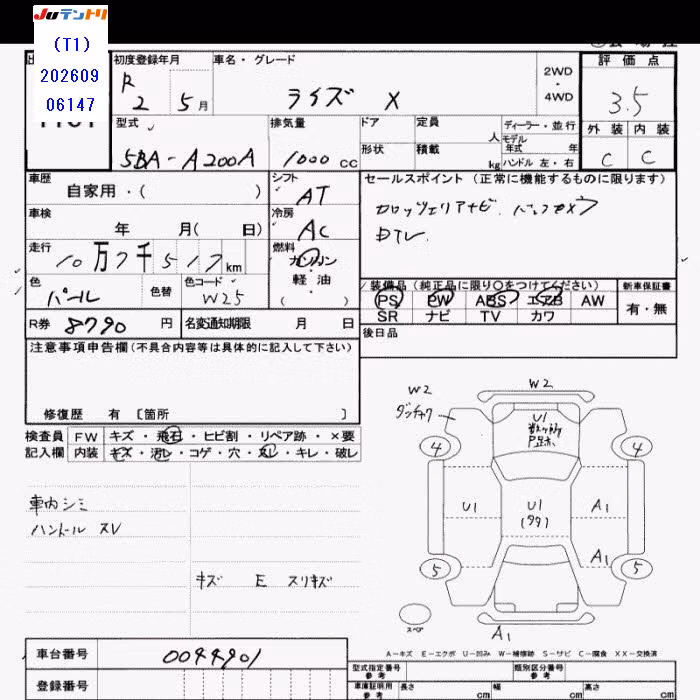 JUテントリ
(T1)
202609
06147
初度登録年月
R 2 5月
車名・グレード
ライズ X
2WD
・
4WD
評価点
3.5
外装 内装
C C
型式
5BA-A200A
排気量
1000cc
ドア
形状
定員
人
積載
kg
ディーラー・並行
モデル
年式 年
ハンドル 左・右
車歴
自家用・( )
シフト
AT
セールスポイント(正常に機能するものに限ります)
カロッツェリアナビ. バックカメラ
DTV
車検
年 月( 日)
冷房
AC
走行
10万7千517km
燃料
ガソリン
軽・油
( )
色
パール
色替
色コード
W25
装備品(純正品に限り○をつけてください)
新車保証書
PS PW ABS エアB AW
有・無
SR ナビ TV カワ
R券 8790円
名変通知期限 月 日
後日品
注意事項申告欄(不具合内容等は具体的に記入して下さい)
修復歴 有 〔箇所 〕
検査員 FW キズ・飛石・ヒビ割・リペア跡・×要
記入欄 内装 キズ・汚レ・コゲ・穴・スレ・キレ・破レ
車内シミ
ハンドル スレ
キズ E スリキズ
W2
W2
U1
4
4
U1
U1
A1
A1
5
5
スペア
A1
A-キズ E-エクボ U-凹み W-補修跡 S-サビ C-腐食 XX-交換済
車台番号 0044901
登録番号
型式指定番号
参考
類別区分番号
参考
車庫証明用
参考
長さ cm
幅 cm
高さ cm